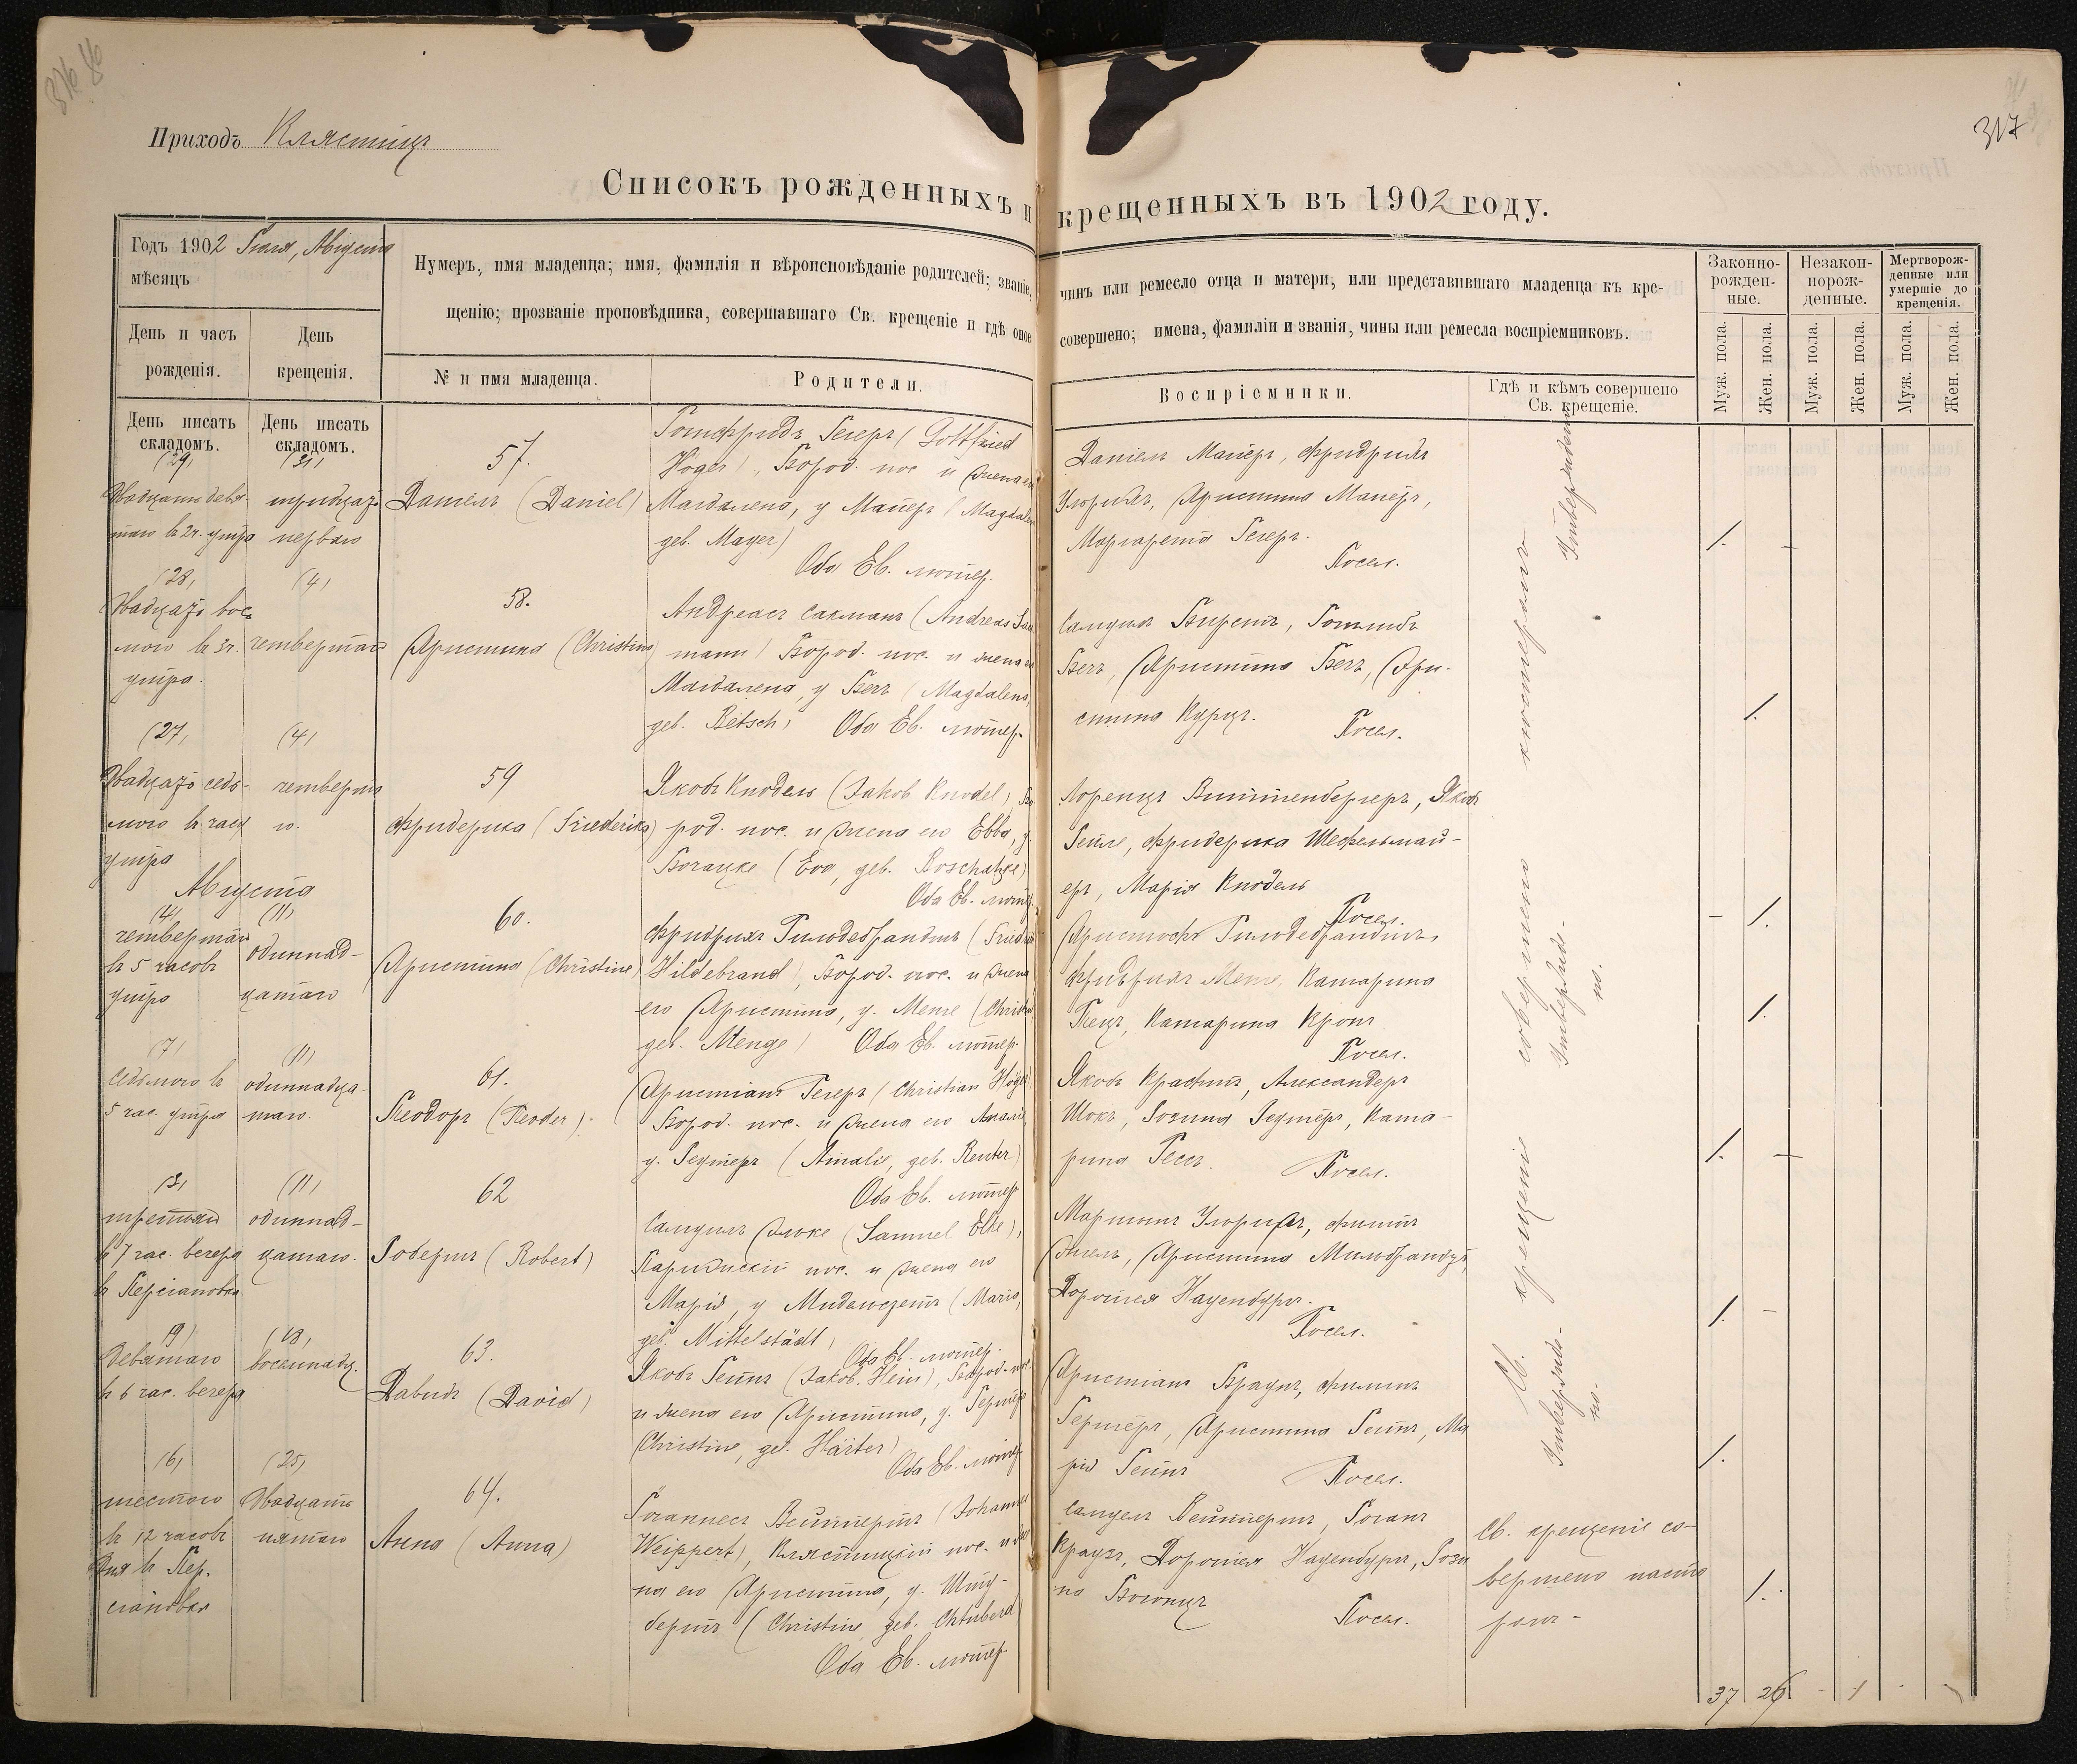 317
Приходъ Клястицъ
Списокъ рожденныхъ и крещенныхъ въ 1902 году.
Годъ 1902 Іюля, Августа
мѣсяцъ
Нумеръ, имя младенца; имя, фамилія и вѣроисповѣданіе родителей; званіе, чинъ или ремесло отца и матери, или представившаго младенца къ кре-
щенію; прозваніе проповѣдника, совершавшаго Св. крещеніе и гдѣ оное совершено; имена, фамиліи и званія, чины или ремесла воспріемниковъ.
День и часъ
рожденія.
День
крещенія.
№ и имя младенца.
Родители.
Воспріемники.
Гдѣ и кѣмъ совершено
Св. крещеніе.
Законно-
рожден-
ные.
Незакон-
норож-
денные.
Мертворож-
денные или
умершіе до
крещенія.
Муж. пола.
Жен. пола.
Муж. пола.
Жен. пола.
Муж. пола.
Жен. пола.
День писать
складомъ.
День писать
складомъ.
(29)
Двадцать девя-
таго въ 2ч. утра
(31)
тридцать
перваго
57.
Даніелъ (Daniel)
Готфридъ Гегеръ (Gottfried
Höger), Бород. пос. и жена его
Магдалена, у. Майеръ (Magdalena
geb. Mayer)
Оба Ев. лютер.
Даніелъ Майеръ, Фридрихъ
Ульрихъ, Христина Майеръ,
Маргарета Гегеръ.
Посел.
(28)
Двадцать вось
мого въ 3ч.
утра.
(4)
четвертаго
58.
Христина (Christina)
Андреасъ Сакманъ (Andreas Sack
mann) Бород. пос. и жена его
Магдалена, у. Бечъ (Magdalena,
geb. Bétsch) Оба Ев. лютер.
Бечъ, Христина Бечъ, Хри-
стина Курцъ.
Посел.
(27)
Двадцать седь-
мого въ часъ
утра
(4)
четверта
го.
59
Фридерика (Friederika)
Якобъ Кнодель (Jakob Knodel), Бо
род. пос. и жена его Евва, у.
Богацке (Eva, geb. Boschatzke)
Оба Ев. лютер.
Лоренцъ Виттенбергеръ, Якобъ
Гейнъ, Фридерика Шефельмай-
еръ, Марія Кнодель
Посел.
Августа
(4)
четвертаго
въ 5 часовъ
утра
(11)
одиннад-
цатаго
60.
Христина (Christine)
Фридрихъ Гильдебрандтъ (Friedrich
Hildebrand), Бород. пос. и жена
его Христина, у. Менге (Christina
geb. Menge) Оба Ев. лютер.
Христофъ Гильдебрандтъ,
Фридрихъ Менге, Катарина
Пецъ, Катарина Кронъ
Посел.
(7)
Седьмого въ
5 час. утра
(11)
одиннадца-
таго.
61.
Теодоръ (Teoder).
Христіанъ Гегеръ (Christian Höger)
Бород. пос. и жена его Амалія,
у. Рейтеръ (Amalie, geb. Reuter)
Оба Ев. лютер.
Якобъ Крафтъ, Александеръ
Шокъ, Розина Рейтеръ, Ката-
рина Гессъ.
Посел.
(3)
третьяго
въ 7 час. вечера
въ Персіановка
(11)
одиннад-
цатаго.
62
Робертъ (Robert)
Самуилъ Эльке (Samuel Elke),
Парижскій пос. и жена его
Марія, у. Мительштетъ (Maria,
geb. Mittelstädt)
Оба Ев. лютер.
Мартинъ Ульрихъ,
Христина Мильбрандтъ,
Доротея Наценбургъ.
Посел.
(9)
Девятаго
въ 6 час. вечера
(18)
восемнадц.
63.
Давидъ (David)
Якобъ Гейнъ (Jakob Hein), Бород. пос.
и жена его Христина, у. Гертеръ
Christine, geb. Härter)
Оба Ев. лютер.
Христіанъ Браунъ, Филиппъ
Гертеръ, Христина Гейнъ, Ма
рія Гейнъ
Посел.
(6)
шестого
въ 12 часовъ
дня въ Пер.
сіановка
(25)
Двадцать
пятаго
64.
Анна (Anna)
Іоганнесъ Вейппертъ (Johannes
Weippert), Клястицкій пос. и же
на его Христина, у. Шту-
бертъ (Christine geb. Schtuberd)
Оба Ев. лютер.
Самуелъ Вейппертъ, Іоганъ
Краузъ, Доротея Наценбургъ, Рози
на
Посел.
Св. крещеніе совершено кюстеромъ
Имвергиндено
Св. крещеніе со-
вершено пасто
ромъ-
37 26 - 1 - 1